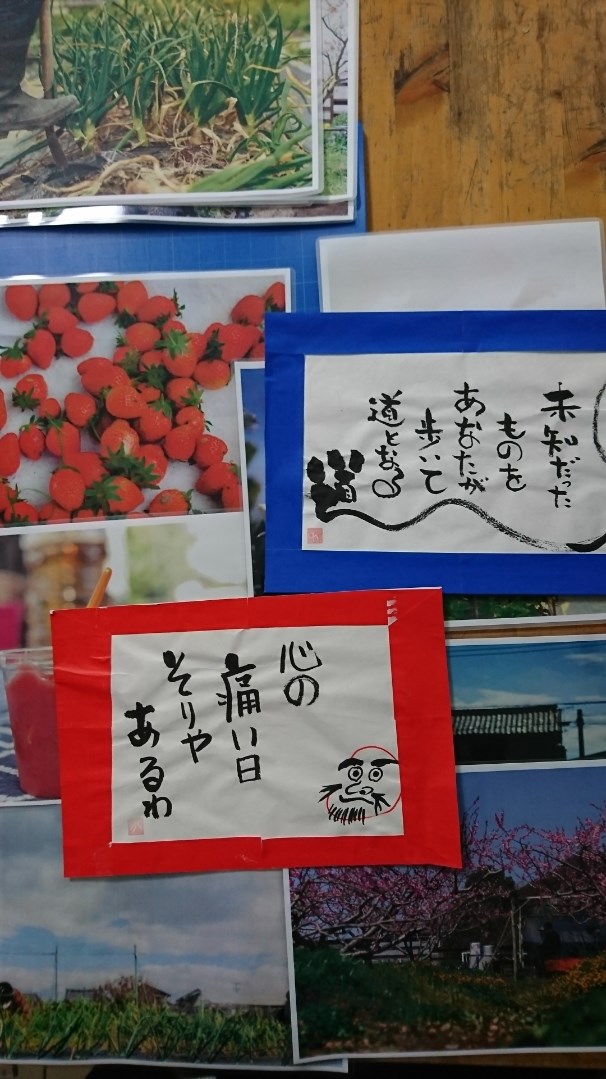 未知だった
ものを
あなたが
歩いて
道となる
道
心の
痛い日
そりゃ
あるわ